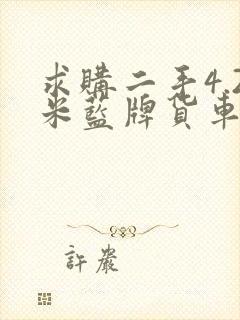 求購二手4.2
米藍牌貨車
許巖